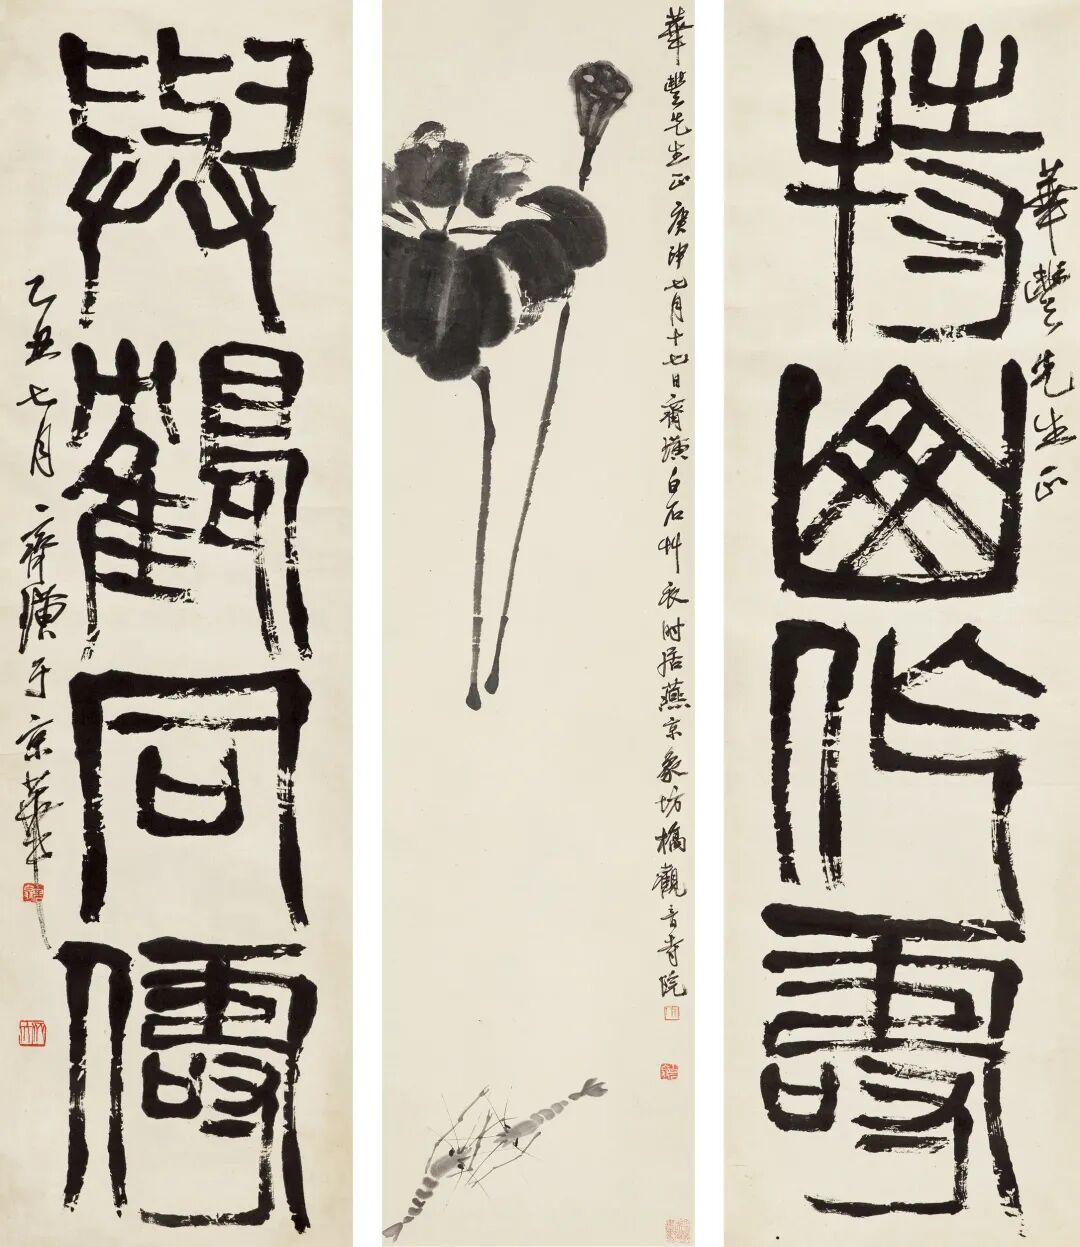 華豐先生正
持山作壽
華豐先生正庚申七月十七日齊璜白石艸衣時居燕京象坊橋觀音寺院
與鶴同儔
乙丑七月齊璜于京華